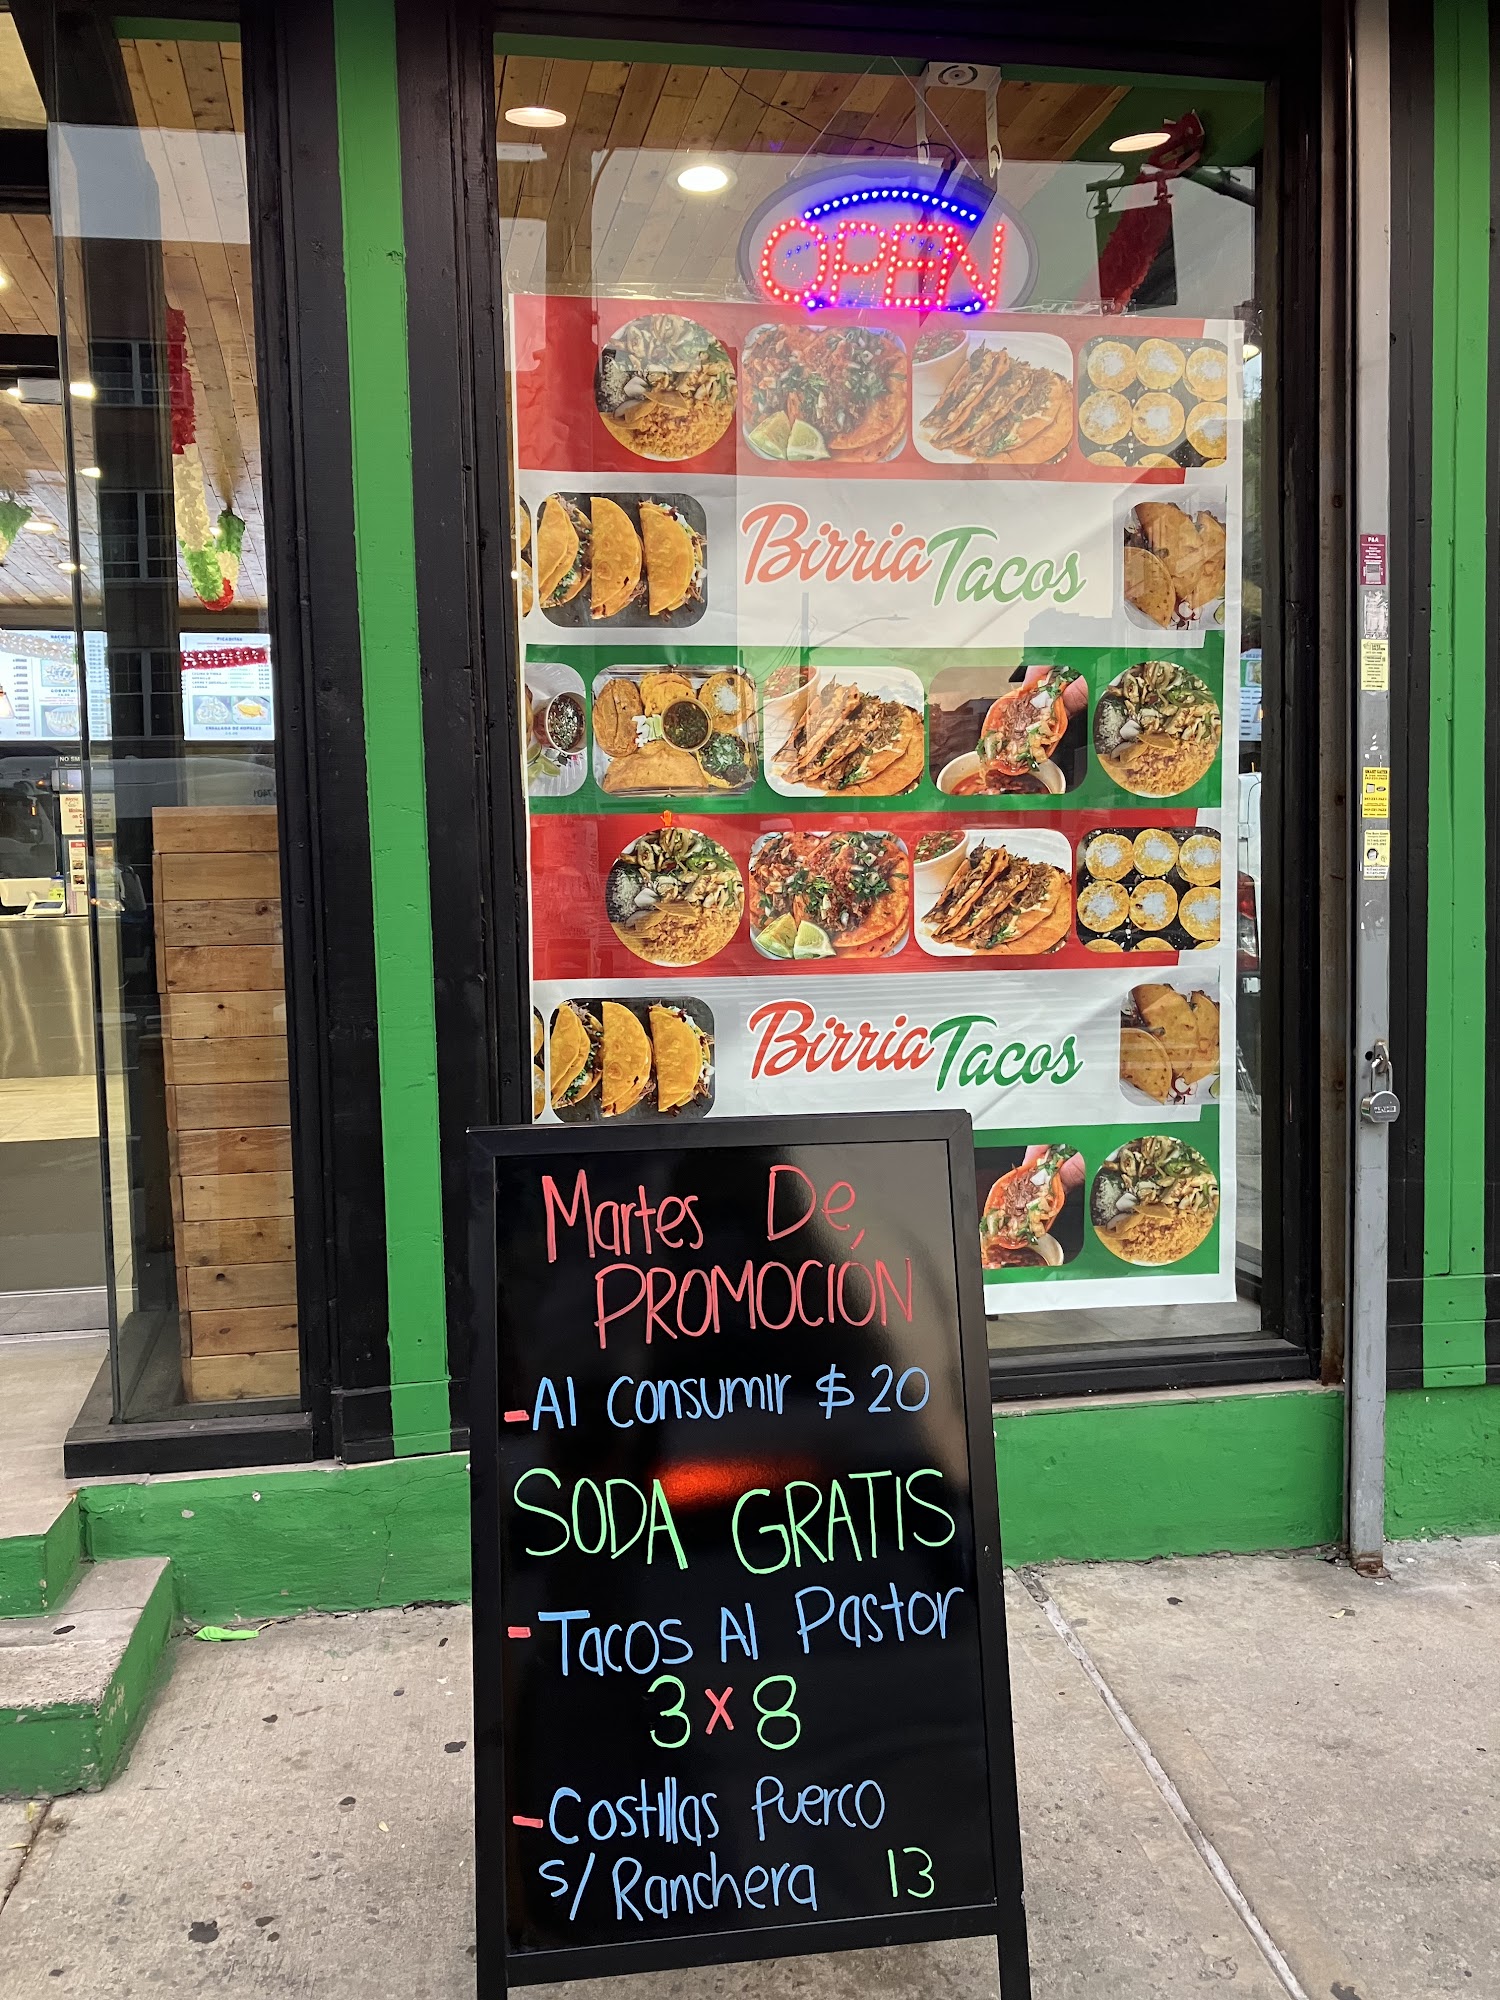 OPEN
Birria Tacos
NACHOS
PICADITAS
NO SM
P&A
Birria Tacos
Martes De
PROMOCIÓN
-Al Consumir $20
SODA GRATIS
-Tacos Al Pastor
3x8
-Costillas Puerco
s/Ranchera 13